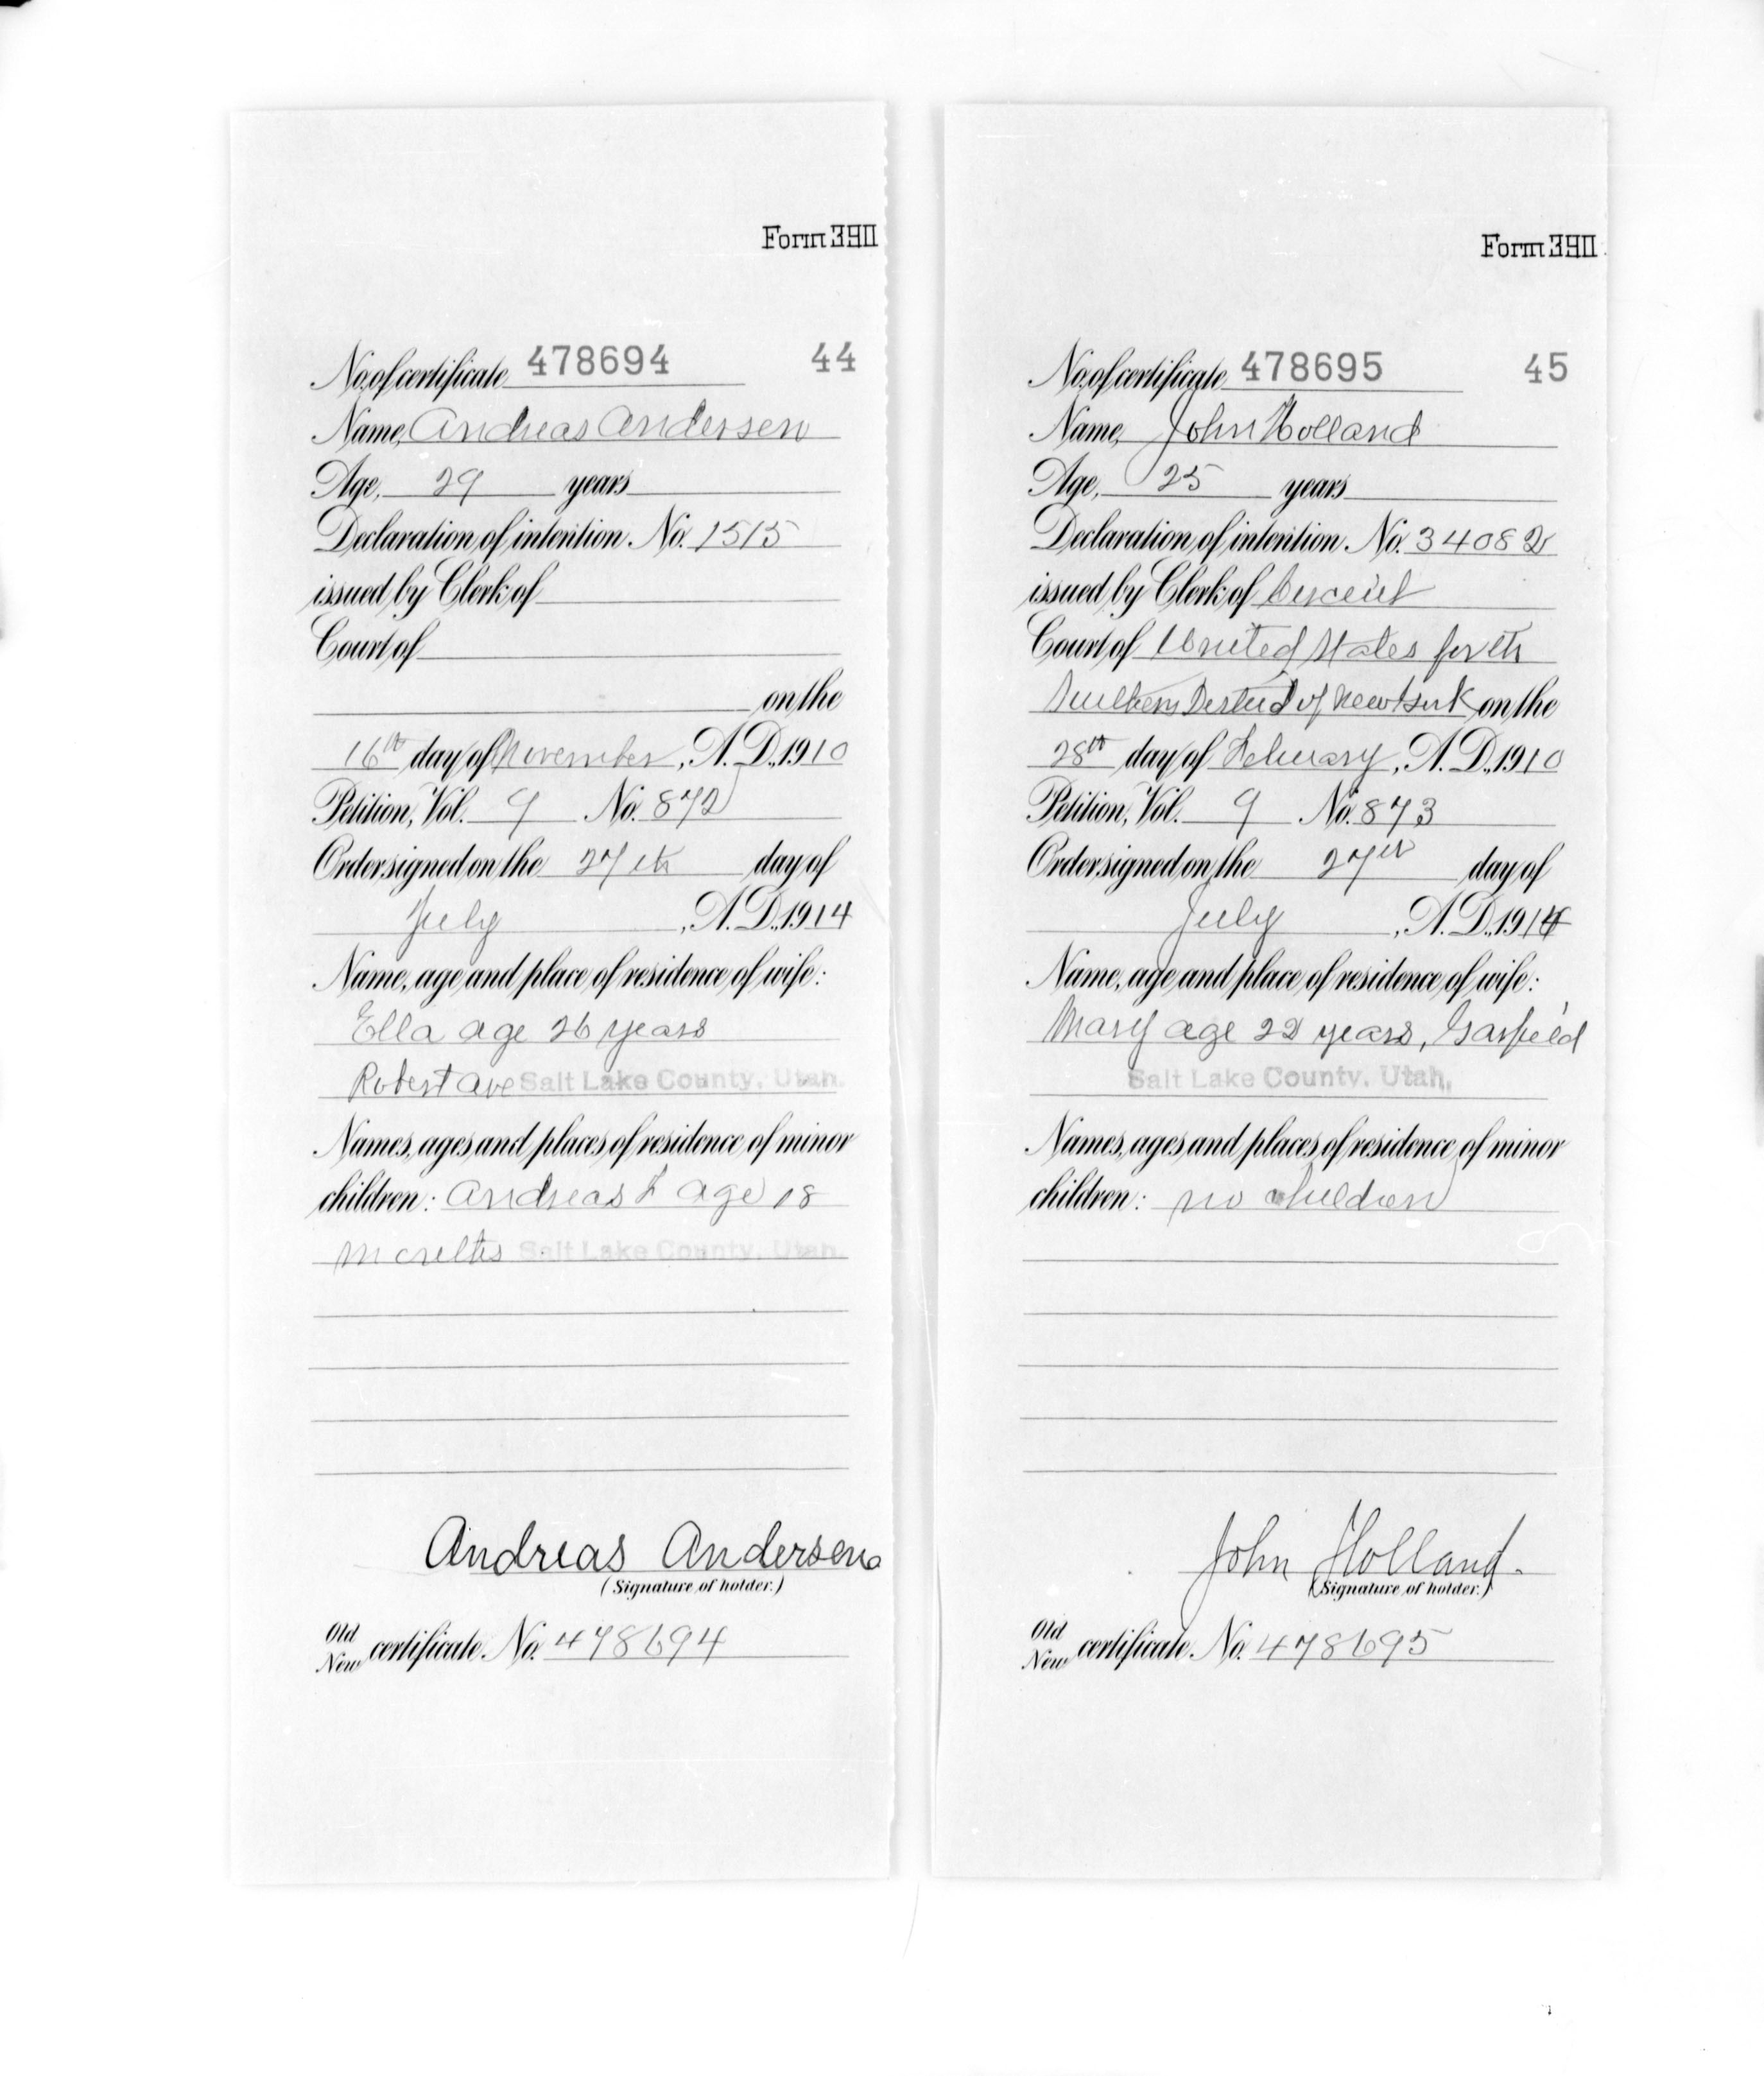 Form 390
No. of certificate 478694 44
Name, Andreas Andersen
Age, 29 years
Declaration of intention No. 1515
issued by Clerk of
Court of
on the
16th day of November, A. D., 1910
Petition, Vol. 9 No. 872
Order signed on the 27th day of
July, A. D., 1914
Name, age and place of residence of wife:
Ella age 26 years
Robert Ave Salt Lake County, Utah.
Names, ages and places of residence of minor
children: Andreas L age 18
months Salt Lake County, Utah.
Andreas Andersen
(Signature of holder.)
Old
New certificate No. 478694
Form 390
No. of certificate 478695 45
Name, John Holland
Age, 25 years
Declaration of intention No. 34082
issued by Clerk of Circuit
Court of United States for th
Southern District of New York on the
28th day of February, A. D., 1910
Petition, Vol. 9 No. 873
Order signed on the 27th day of
July, A. D., 1914
Name, age and place of residence of wife:
Mary age 22 years, Garfield
Salt Lake County, Utah,
Names, ages and places of residence of minor
children: no children
John Holland.
(Signature of holder.)
Old
New certificate No. 478695